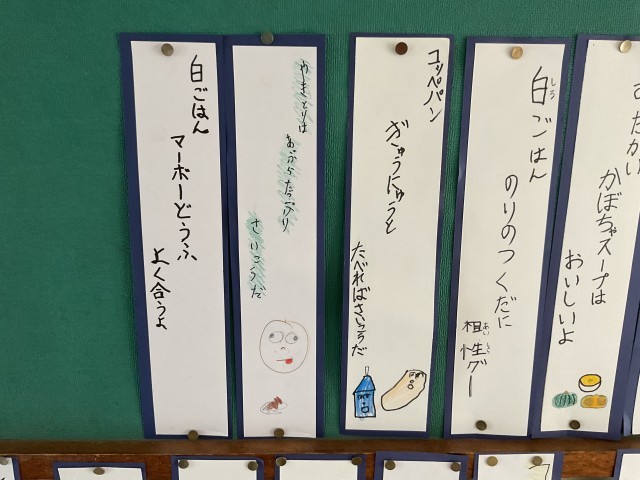 たかい
かぼちゃスープは
おいしいよ
しろ
白ごはん
のりのつくだに
相性グー
コッペパン
ぎゅうにゅうと
たべればさいこうだ
やきとりは
あぶらたっぷり
さいこうだ
白ごはん
マーボーどうふ
よく合うよ